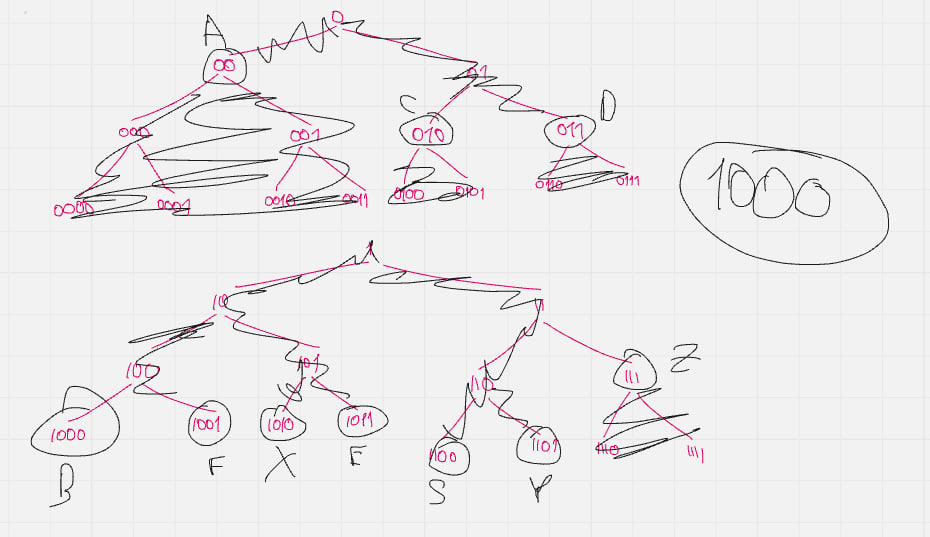 0
A
00
01
C
D
000
001
010
011
0000
0001
0010
0011
0100
0101
0110
0111
1000
1
10
100
101
110
111
Z
1000
1001
1010
1011
1100
1101
1110
1111
B
F
X
E
S
Y